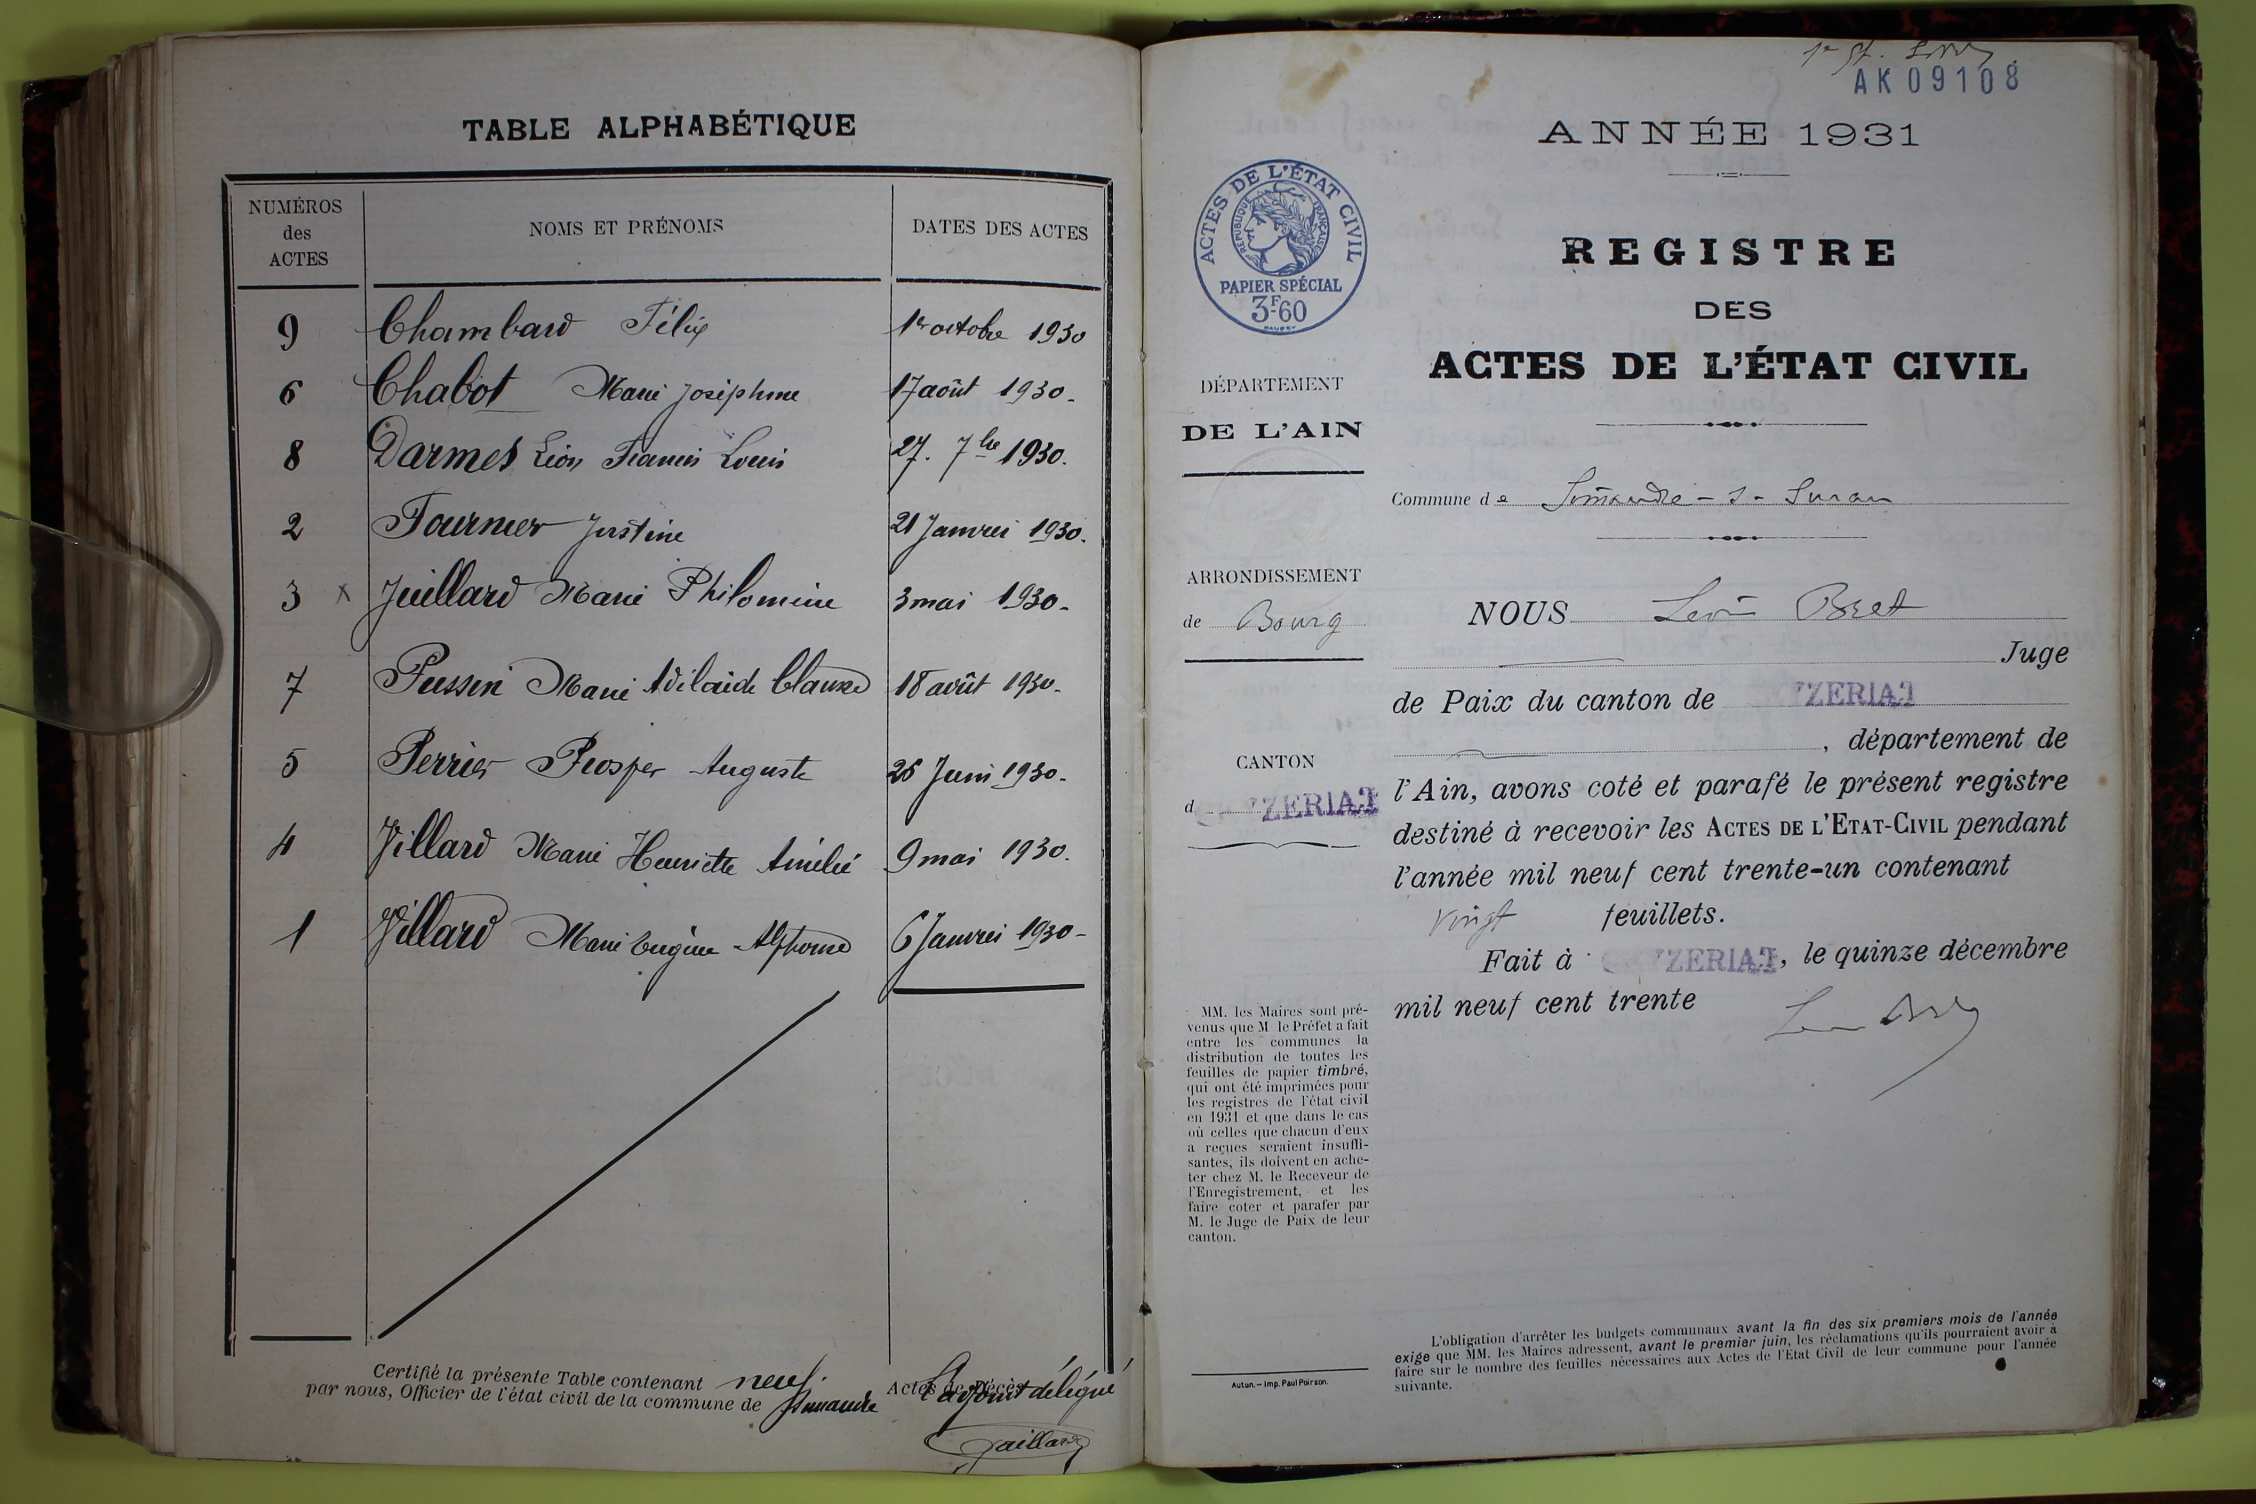 TABLE ALPHABÉTIQUE
NUMÉROS
des
ACTES
NOMS ET PRÉNOMS
DATES DES ACTES
9 Chambard Félix 1er octobre 1930
6 Chabot Marie Joséphine 17 août 1930.
8 Darmes Léon Francis Louis 27. 7bre 1930.
2 Fournier Justine 21 Janvier 1930.
3 x Juillard Marie Philomène 3 mai 1930.
7 Marie Adélaïde 18 août 1930.
5 Perrier Prosper Auguste 25 Juin 1930.
4 Villard Marie Henriette Amélie 9 mai 1930.
1 Villard Marie Eugène Alphonse 6 Janvier 1930
Certifié la présente Table contenant neuf Actes de Décès
par nous, Officier de l'état civil de la commune de Simandre
L'adjoint délégué
AK09108
ANNÉE 1931
ACTES DE L'ÉTAT CIVIL
RÉPUBLIQUE FRANÇAISE
PAPIER SPÉCIAL
3F60
REGISTRE
DES
ACTES DE L'ÉTAT CIVIL
DÉPARTEMENT
DE L'AIN
Commune de Simandre-s-Suran
ARRONDISSEMENT
de Bourg
CANTON
d CEYZERIAT
NOUS Léon Bret
Juge
de Paix du canton de CEYZERIAT
, département de
l'Ain, avons coté et parafé le présent registre
destiné à recevoir les ACTES DE L'ETAT-CIVIL pendant
l'année mil neuf cent trente-un contenant
vingt feuillets.
Fait à CEYZERIAT, le quinze décembre
mil neuf cent trente
MM. les Maires sont pré-
venus que M le Préfet a fait
entre les communes la
distribution de toutes les
feuilles de papier timbré,
qui ont été imprimées pour
les registres de l'état civil
en 1931 et que dans le cas
où celles que chacun d'eux
a reçues seraient insuffi-
santes, ils doivent en ache-
ter chez M. le Receveur de
l'Enregistrement, et les
faire coter et parafer par
M. le Juge de Paix de leur
canton.
Autun. — Imp. Paul Poirson.
L'obligation d'arrêter les budgets communaux avant la fin des six premiers mois de l'année
exige que MM. les Maires adressent, avant le premier juin, les réclamations qu'ils pourraient avoir à
faire sur le nombre des feuilles nécessaires aux Actes de l'Etat Civil de leur commune pour l'année
suivante.